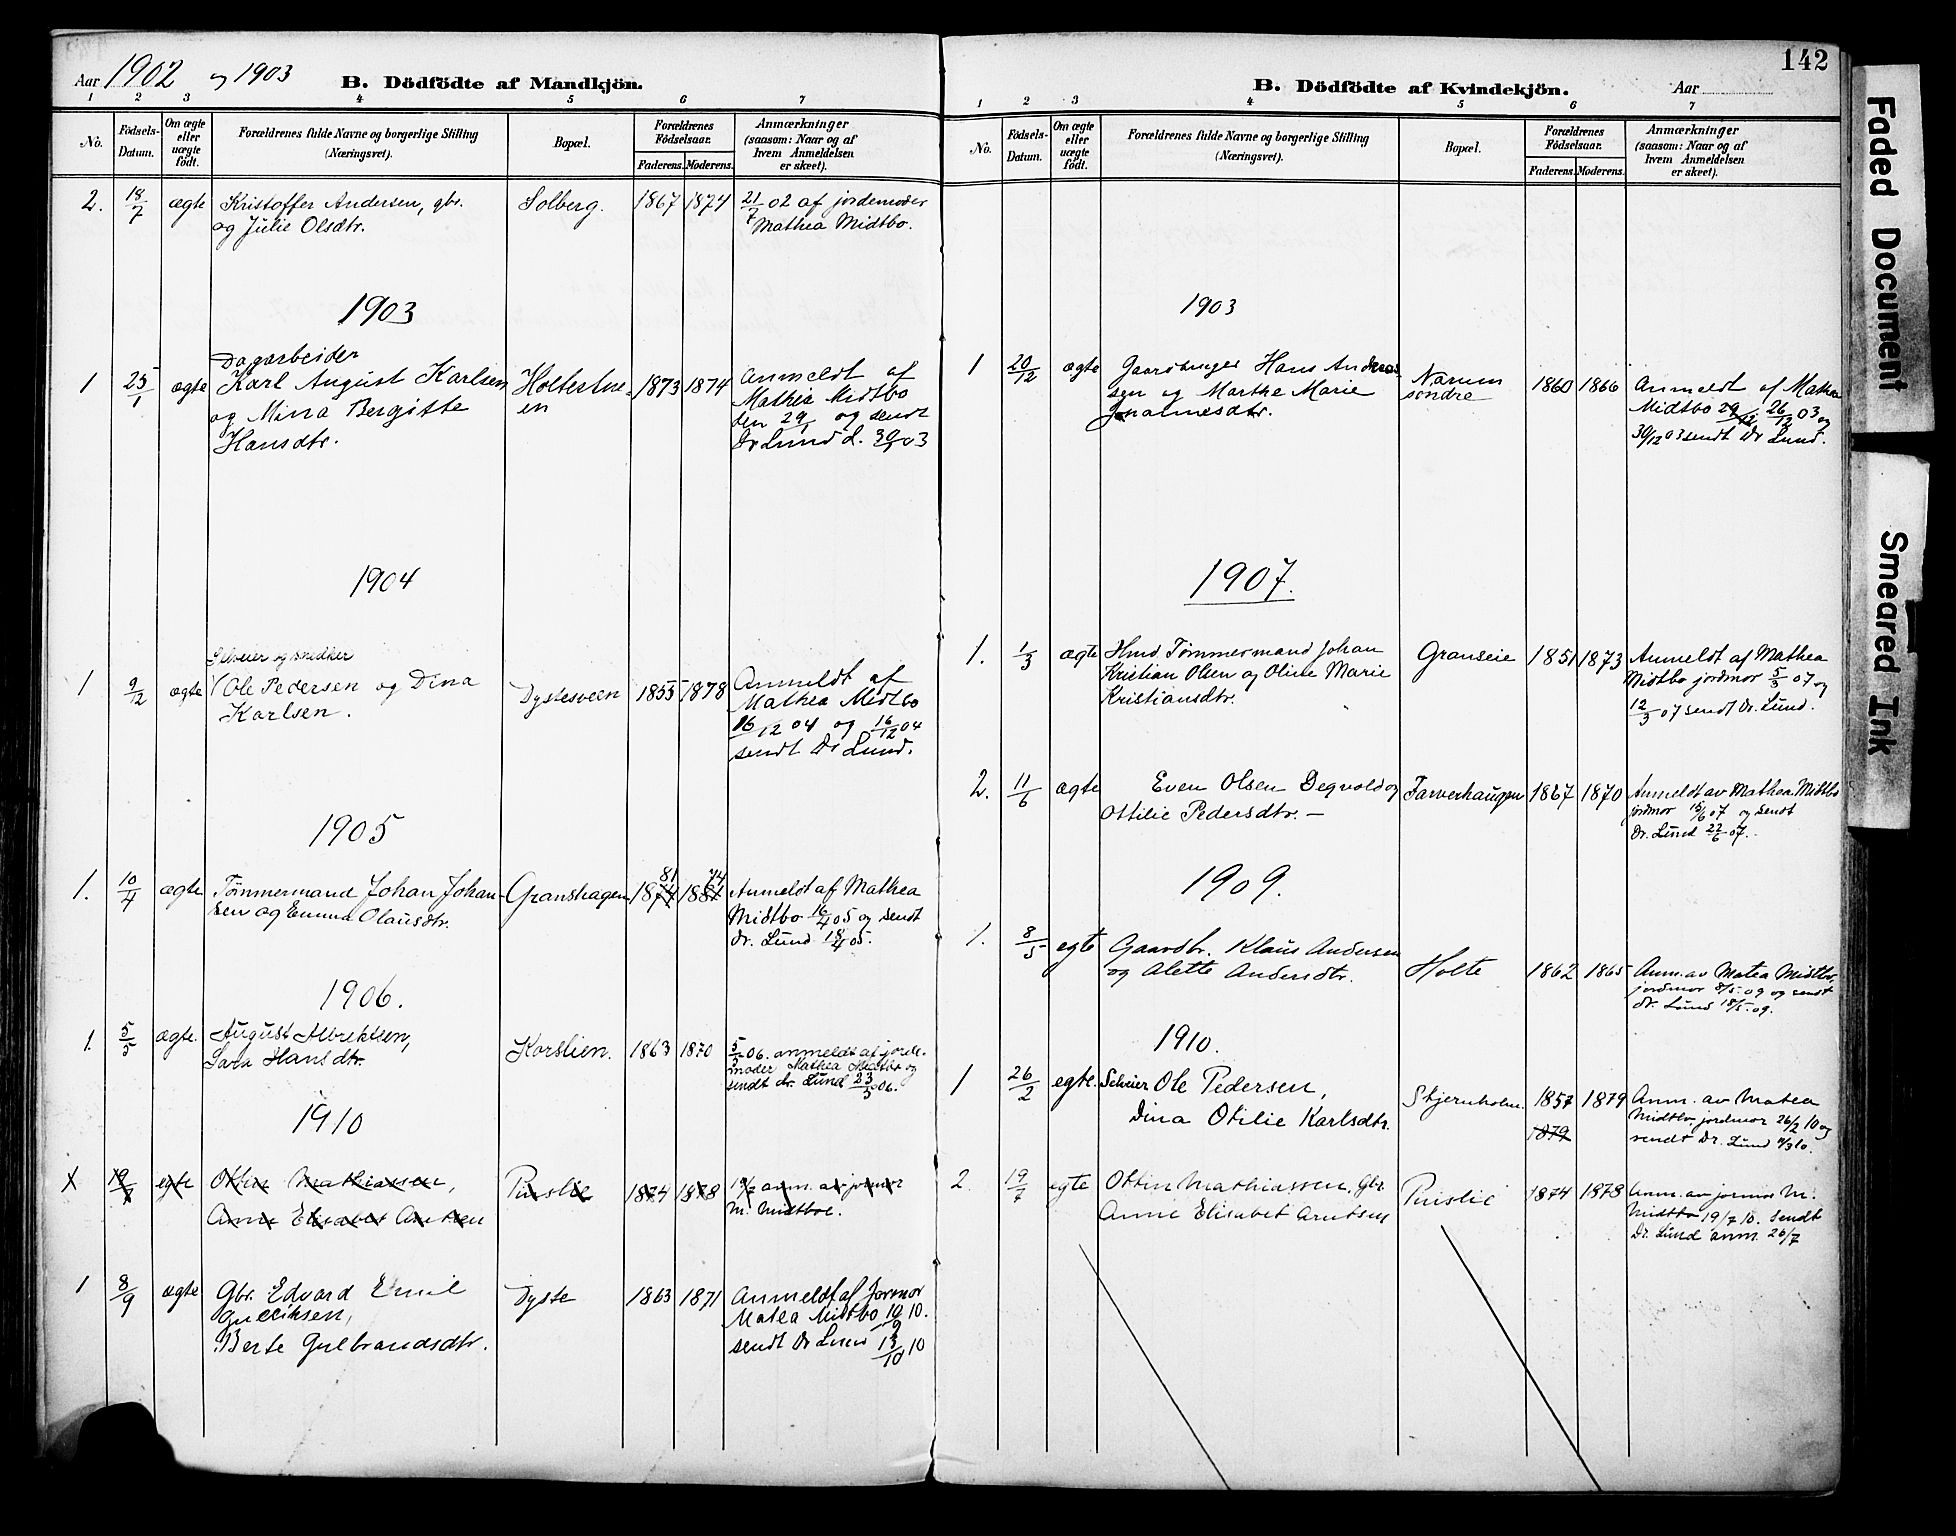 Aar 1902 og 1903 B. Dödfödte af Mandkjön.
1 2 3 4 5 6 7
No. Födsels-Datum. Om ægte eller uægte födt. Forældrenes fulde Navne og borgerlige Stilling (Næringsvei). Bopæl. Forældrenes Födselsaar. Faderens. Moderens. Anmærkninger (saasom: Naar og af hvem Anmeldelsen er skeet).
2. 18/7 ægte Kristoffer Andersen, gbr. Solberg. 1867 1874 21/7 02 af jordemoder
og Julie Olsdtr. Mathea Midtbo.
1903
Dagarbeider
1 25/1 ægte Karl August Karlsen 1873 1874 Anmeldt af
og Mina Bergitte Mathea Midtbo
Hansdtr. den 29/1 og sendt
Dr Lund d. 30/1 03
1904
Selveier og snedker
1 9/12 ægte Ole Pedersen og Dina Dystesveen 1855 1878 Anmeldt af
Karlsen. Mathea Midtbo
16/12 04 og 16/12 04
sendt Dr Lund.
1905
1. 10/4 ægte Tømmermand Johan Johan- Granshagen 1874 81 1881 74 Anmeldt af Mathea
sen og Emma Olausdtr. Midtbo 16/4 05 og sendt
dr. Lund 18/4 05.
1906.
1. 5/5 ægte. August Albrektsen, Korslien. 1863 1870 5/5 06. anmeldt af jorde-
Sara Hansdtr. moder Mathea Midtbo og
sendt dr. Lund 23/5 06.
1910
1 19/7 egte Ottin Mathiassen, Puislie 1874 1878 19/7 anm. av jormor
Anne Elisabet Arntsen M. Midtboe.
1 8/9 ægte Gbr. Edvard Emil Dyste 1863 1871 Anmeldt af Jormor
Matea Midtbo 10/9 10.
Berte Gulbrandsdtr. sendt Dr Lund 13/10 10
142
B. Dödfödte af Kvindekjön. Aar
1 2 3 4 5 6 7
No. Födsels-Datum. Om ægte eller uægte födt. Forældrenes fulde Navne og borgerlige Stilling (Næringsvei). Bopæl. Forældrenes Födselsaar. Faderens. Moderens. Anmærkninger (saasom: Naar og af hvem Anmeldelsen er skeet).
1903
1 20/12 ægte Gaardbruger Hans Andreas- Narum 1860 1866 Anmeldt af Mathea
sen og Marthe Marie søndre Midtbo 29/12 26/12 03 og
Johannesdtr. 30/12 03 sendt Dr Lund.
1907.
1. 1/3 ægte Hmd Tømmermand Johan Granseie 1851 1873 Anmeldt af Mathea
Kristian Olsen og Oline Marie Midtbo jordmor 5/3 07 og
Kristiansdtr. 12/3 07 sendt Dr. Lund.
2. 11/6 ægte Even Olsen Degvold og Farverhaugen 1867 1870 Anmeldt av Mathea Midtbo
Ottilie Pedersdtr. — jordmor 15/6 07 og sendt
Dr. Lund 22/6 07.
1909.
1. 8/5 egte Gaardbr. Klaus Andersen
og Alette Andersdtr. Holte 1862 1865 Anm. av Matea Midtbo,
jordmor 8/5 09 og sendt
dr. Lund 18/5 09.
1910.
1 26/2 egte. Selveier Ole Pedersen, Skjernholm. 1857 1879 Anm. av Matea
Dina Otilie Karlsdtr. 1879 Midtbo, jordmor 26/2 10 og
sendt Dr. Lund 4/3 10.
2. 19/7 egte Ottin Mathiassen, gbr. Puislie 1874 1878 Anm. av jormor M.
Anne Elisabet Arntsen Midtbo 19/7 10. sendt
Dr. Lund anm. 26/7
Faded Document
Smeared Ink